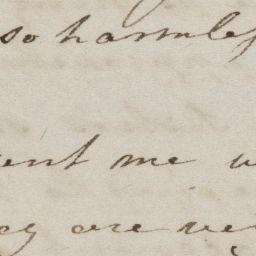 so harmless
ent me w
ey are ve